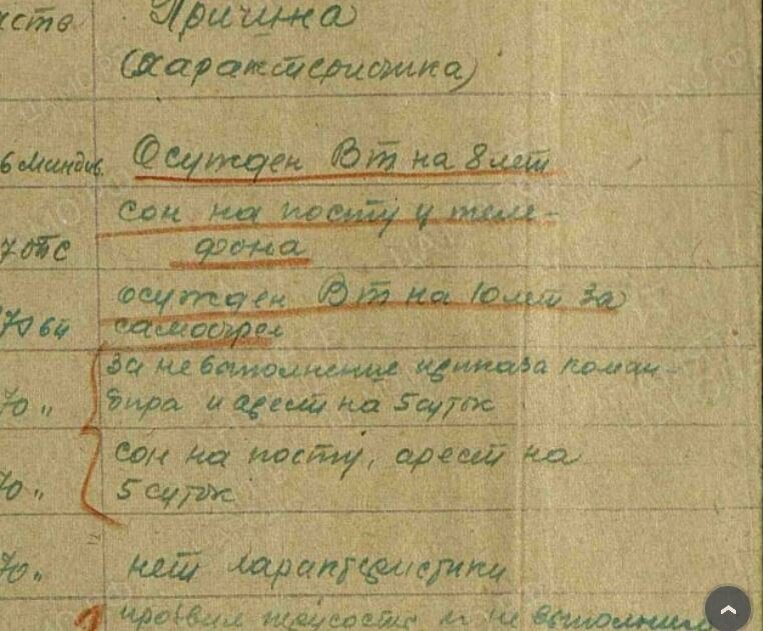 Причина
(характеристика)
Осужден ВТ на 8 лет
сон на посту у теле-
фона
осужден ВТ на 10 лет за
самострел
за невыполнение приказа коман-
дира и арест на 5 суток
70 "
сон на посту, арест на
70 " 5 суток
70 " нет характеристики
проявил трусость и не выполнил